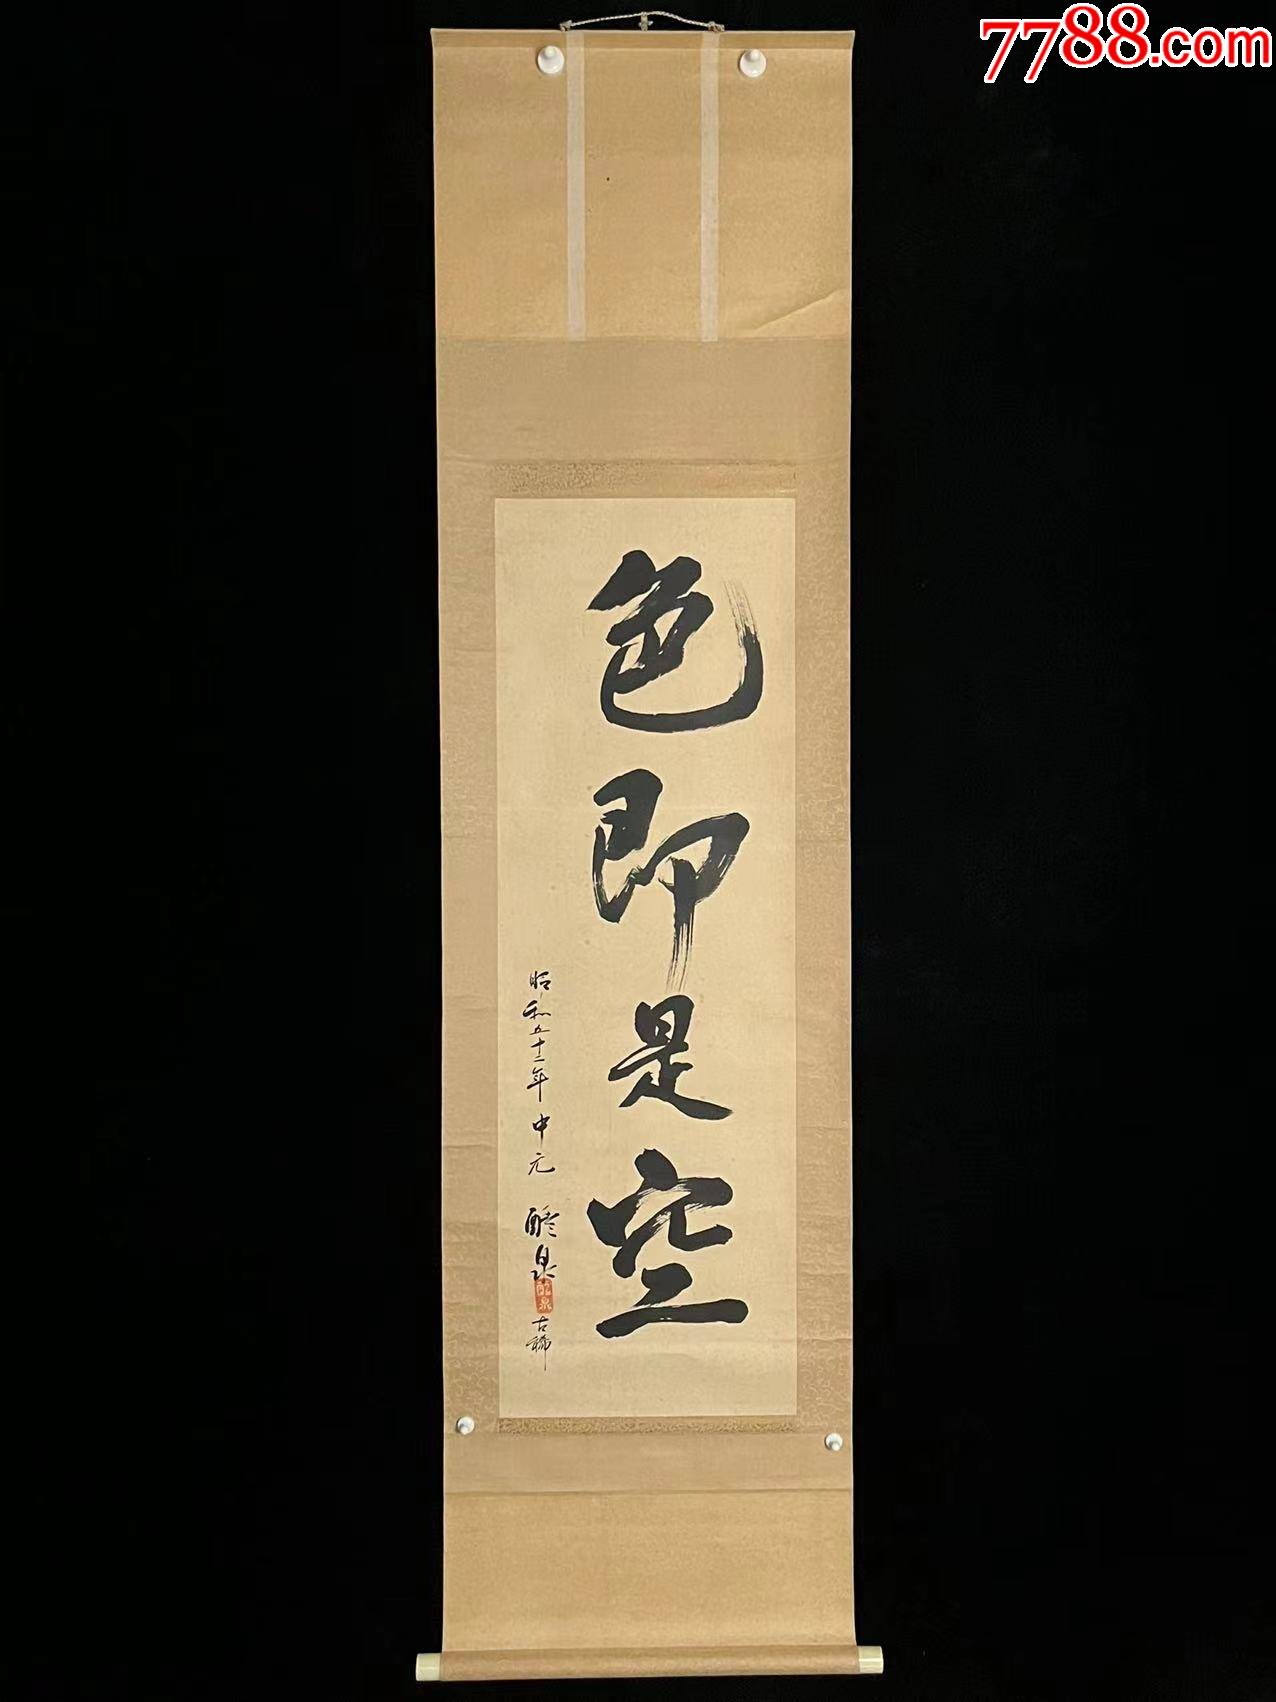 7788.com
色即是空
昭和五十二年中元
泉
古稀